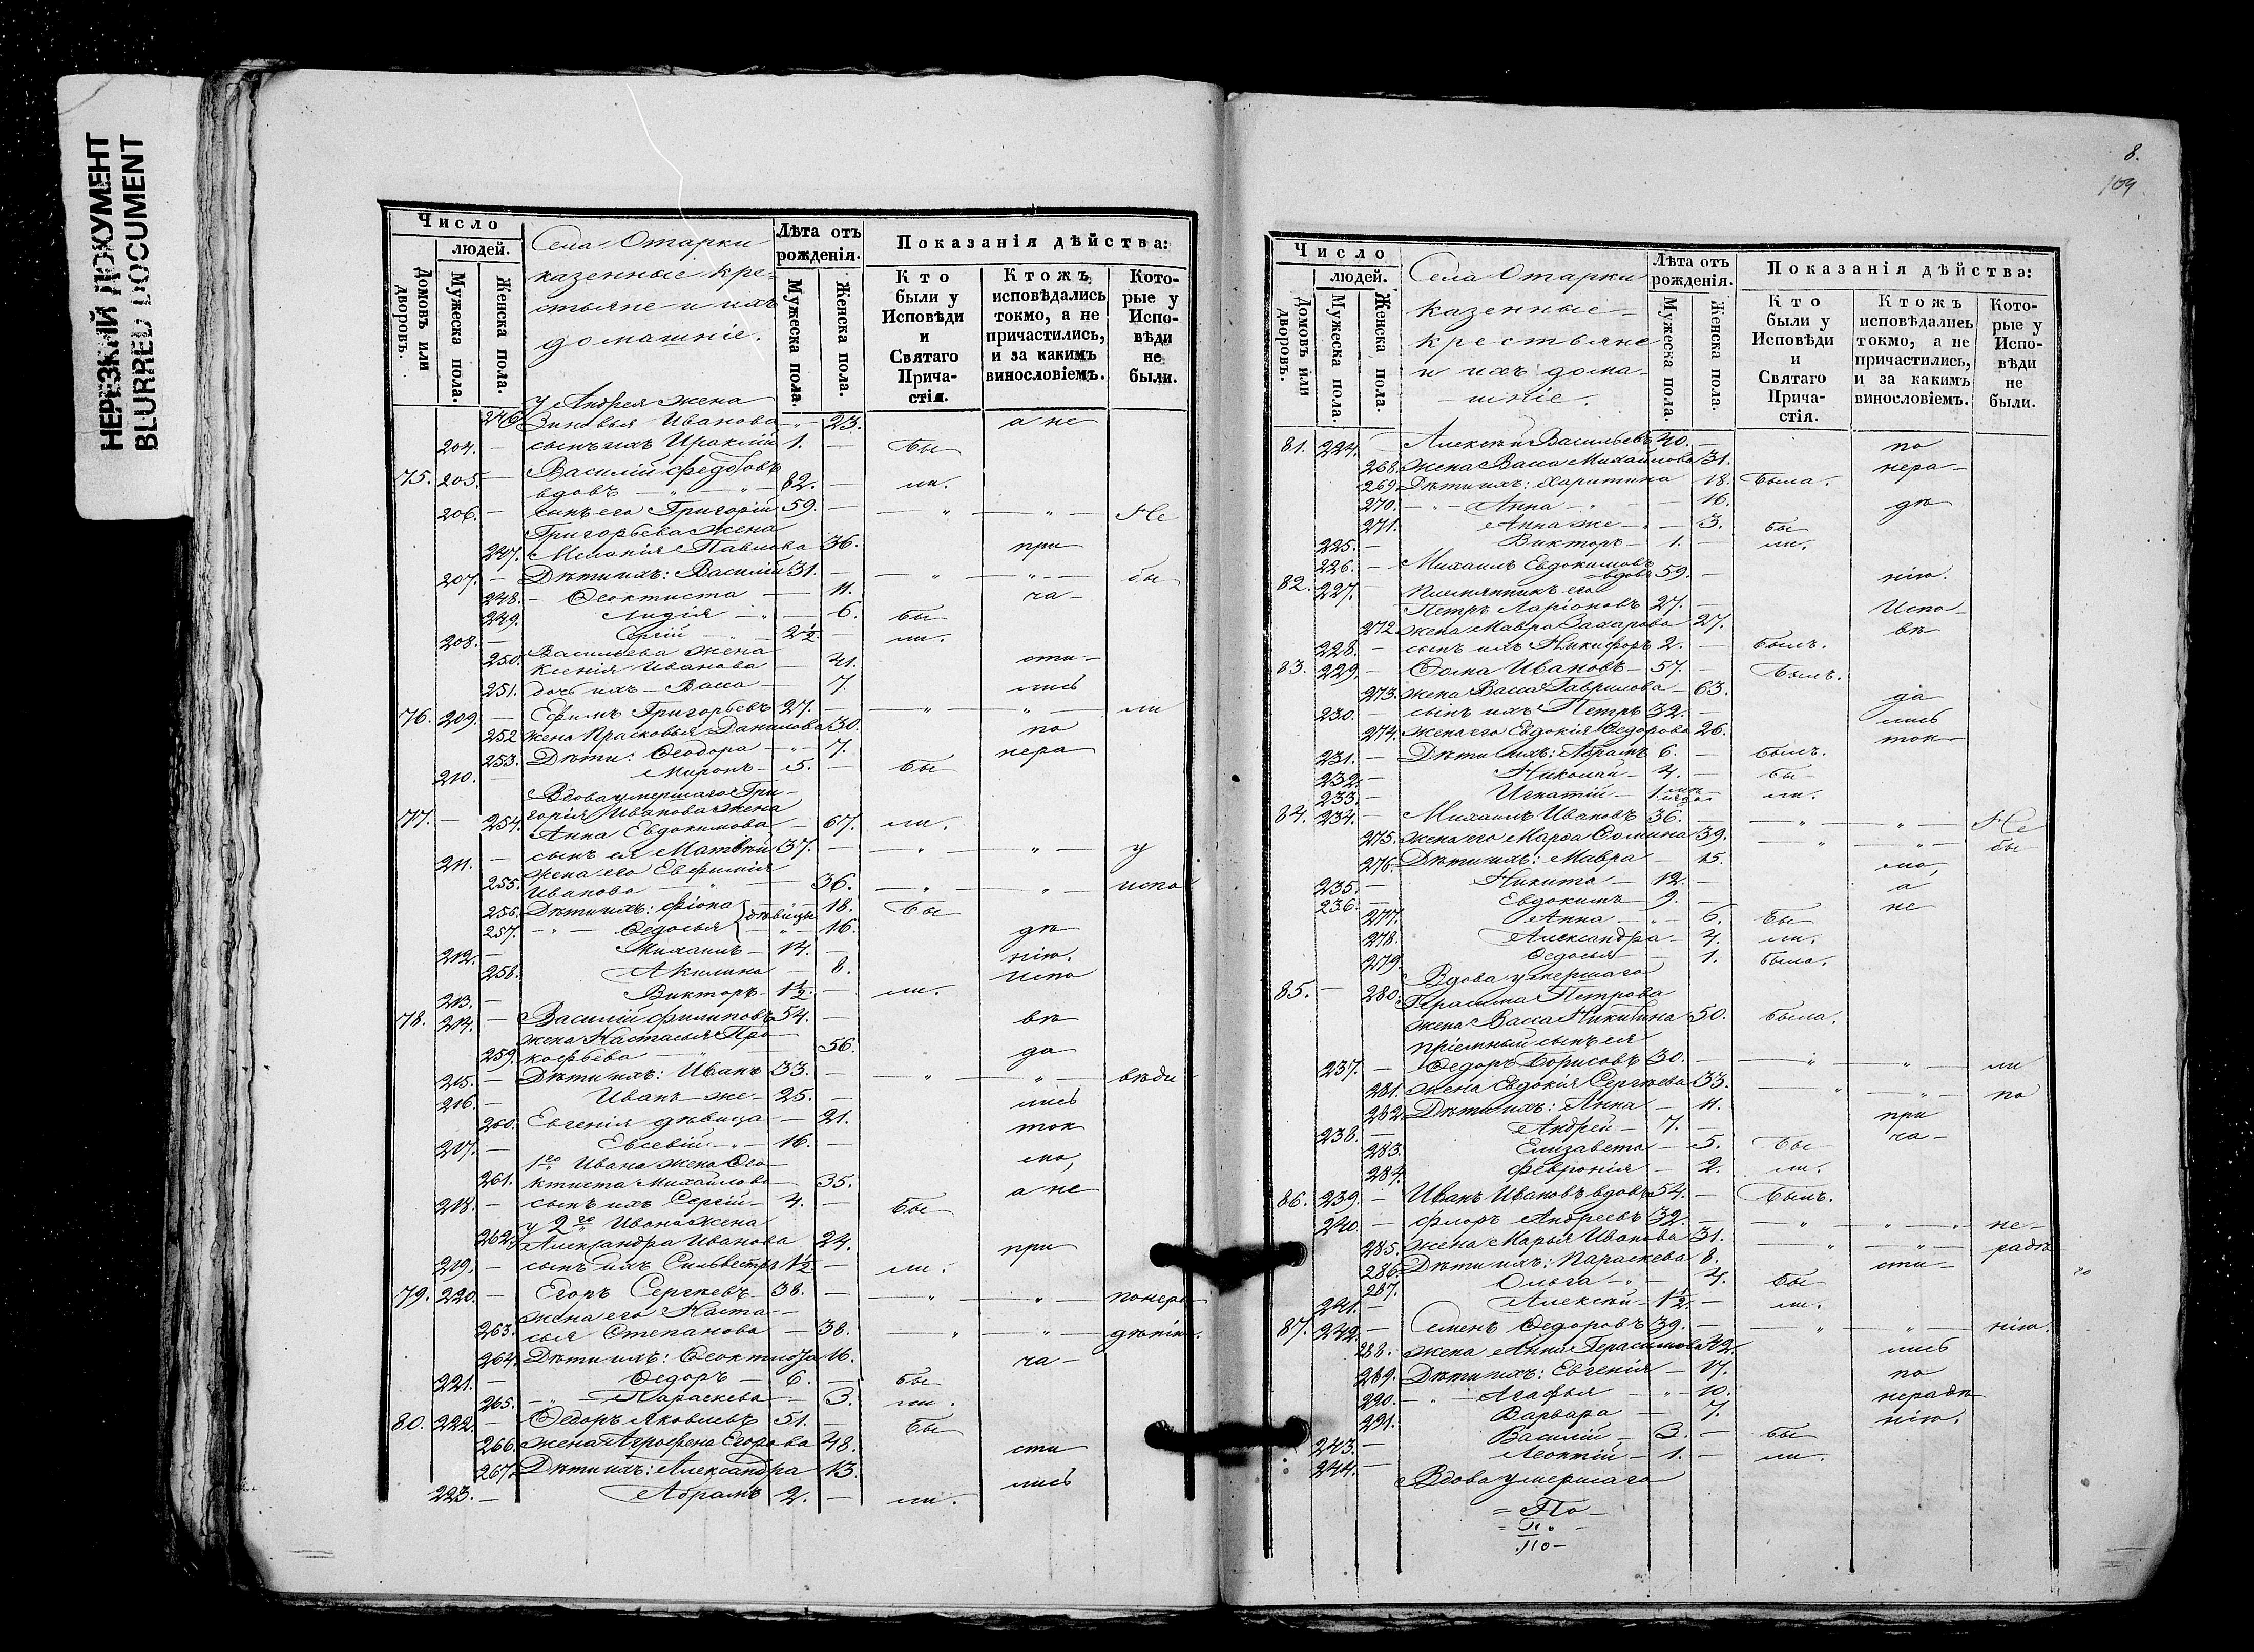 НЕРЕЗКИЙ ДОКУМЕНТ
BLURRED DOCUMENT
Число
людей.
Домовъ или дворовъ.
Мужеска пола.
Женска пола.
Села Отарки
казенные кре-
стьяне и ихъ
домашніе.
Лѣта отъ рожденія.
Мужеска пола.
Женска пола.
Показанія дѣйства:
Кто были у Исповѣди и Святаго Прича-стія.
Ктожъ исповѣдались токмо, а не причастились, и за какимъ винословіемъ.
Кото-рые у Испо-вѣди не были.
у Андрея жена
246. Зиновья Иванова — 23. а не
204. — сынъ ихъ Ираклій 1. — бы
75. 205. — Василій Федотовъ
вдовъ 82. — ли.
206. — сынъ его Григорій 59. — " — " — Не
Григорьева жена
247. Меланія Павлова 36. при
207. — Дѣти их: Василій 31. — " — " — бы
248. — Ѳеоктиста — 11. ча-
249. Лидія — " — 6. бы
208. — Сергій — " — 2½. — ли.
Васильева жена
250. Ксенія Иванова — 41. сти-
251. дочь ихъ — Васса — 7. лись
76. 209. — Ефимъ Григорьевъ 27. — " — " — ли
252 жена Прасковья Данилова 30. по
253. Дѣти: Ѳеодора — " — 7. нера
210. — Миронъ — 5. — бы
Вдова умершаго Гри-
77. — 254. горія Иванова жена
Анна Евдокимова — 67. ли.
211. — сынъ ея Матвѣй 37. — " — " — у
жена его Евфимія
255. Иванова — " — 36. — " — " — испо
256. Дѣти ихъ: Фіона } дѣвицы — 18. бы
257. — " — Ѳедосья — " — 16. дѣ
212. — Михаилъ — 14. — нію.
258. Акилина — 8. Испо
213. — Викторъ — 1½. — ли.
78. 214. — Василій Филиповъ 54. — вѣ
жена Настасья Про-
259. кофьева — " — 56. да
215. — Дѣти ихъ: Иванъ 33. — " — " — вѣди
216. — Иванъ же — 25. — лись
260. Евгенія дѣвица — 21. ток
217. — Евсевій — " — 16. — мо,
1го Ивана жена Ѳео-
261. ктиста Михайлова — 35. а не
218. — сынъ ихъ Сергій — 4. — бы
у 2го Ивана жена
262. Александра Иванова 24. при
219. — сынъ ихъ Сильвестръ 1½ — ли.
79. 220. — Егоръ Сергѣевъ — 38. — " — " — понера
жена его Наста-
263. сья Степанова — 38. — " — " — дѣнію.
264. Дѣти ихъ: Ѳеоктиста 16. ча-
221. — Ѳедоръ — 6. — бы
265. — " — Параскева — 3. ли.
80. 222. — Ѳедоръ Яковлевъ 51. — бы
266. жена Агрофена Егорова 48. сти
267. Дѣти ихъ: Александра 13. лись
223. — Абрамъ 2. — ли.
8.
109
Число
людей.
Домовъ или дворовъ.
Мужеска пола.
Женска пола.
Села Отарки
казенные
крестьяне
и ихъ дома-
шніе.
Лѣта отъ рожденія.
Мужеска пола.
Женска пола.
Показанія дѣйства:
Кто были у Исповѣди и Святаго Прича-стія.
Ктожъ исповѣдались токмо, а не причастились, и за какимъ винословіемъ.
Кото-рые у Испо-вѣди не были.
81. 224. — Алексѣй Васильевъ 40. — по
268. жена Васса Михайлова 31. нера-
269. Дѣти ихъ: Харитина 18. была.
270. — " — Анна — " — 16. дѣ
271. Анна же — " — 3. бы
225. — Викторъ — 1. — ли.
226. — Михаилъ Евдокимовъ
вдовъ 59. — нію.
82. 227. — племянникъ его
Петръ Ларіоновъ 27. — Испо-
272. жена Мавра Захарова 27. вѣ
228. — сынъ ихъ Никифоръ 2. — былъ.
83. 229. — Ѳома Ивановъ — 57. — былъ.
273. жена Васса Гаврилова — 63. да
230. — сынъ ихъ Петръ 32. — лись
274. жена его Евдокія Ѳедорова 26. ток-
231. — Дѣти ихъ: Абрамъ 6. — былъ.
232. — Николай — 4. — бы
233. — Игнатій — 1 — ли.
84. 234. — Михаилъ Ивановъ 36. — " — " — Не
275. жена его Марѳа Ѳомина 39. — " — " — бы
276. Дѣти ихъ: Мавра — 15. мо,
235. — Никита — 12. — а
236. — Евдокимъ 9. — не
277. Анна — " — 6. бы
278. Александра — 4. ли.
279. Ѳедосья — 1. была.
Вдова умершаго
85. — 280. Герасима Петрова
жена Васса Никитина 50. была.
пріемный сынъ ея
237. — Ѳедоръ Борисовъ 30. — " — " — ли
281. жена Евдокія Сергѣева 33. — " — " — по
282. Дѣти ихъ: Анна — 11. при
238. — Андрей — 7. — ча-
283. Елизавета — 5. бы
284. Февронія — 2. ли.
86. 239. — Иванъ Ивановъ вдовъ 54. — былъ.
240. — Флоръ Андреевъ 32. — " — " — не-
285. жена Марья Иванова 31. — " — " — радѣ
286. Дѣти ихъ: Параскева 8. сти-
287. Ольга — " — 4. бы
241. — Алексѣй — 1½. — ли.
87. 242. — Семенъ Ѳедоровъ 39. — " — " — нію.
288. жена Анна Герасимова 42. лись
289. Дѣти ихъ: Евгенія — 17. по
290. — " — Агафья — " — 10. нерадѣ-
291. Варвара — 7. нію.
243. — Василій — 3. — бы
244. — Леонтій — 1. — ли.
Вдова умершаго
= По —